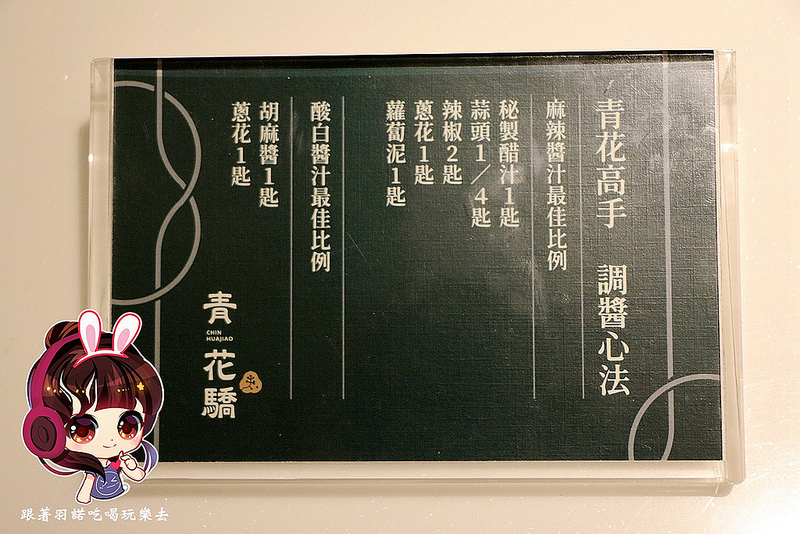 青花高手 調醬心法
麻辣醬汁最佳比例
秘製醋汁1匙
蒜頭1/4匙
辣椒2匙
蔥花1匙
蘿蔔泥1匙
酸白醬汁最佳比例
胡麻醬1匙
蔥花1匙
青花驕
CHIN
HUAJIAO
跟著羽諾吃喝玩樂去